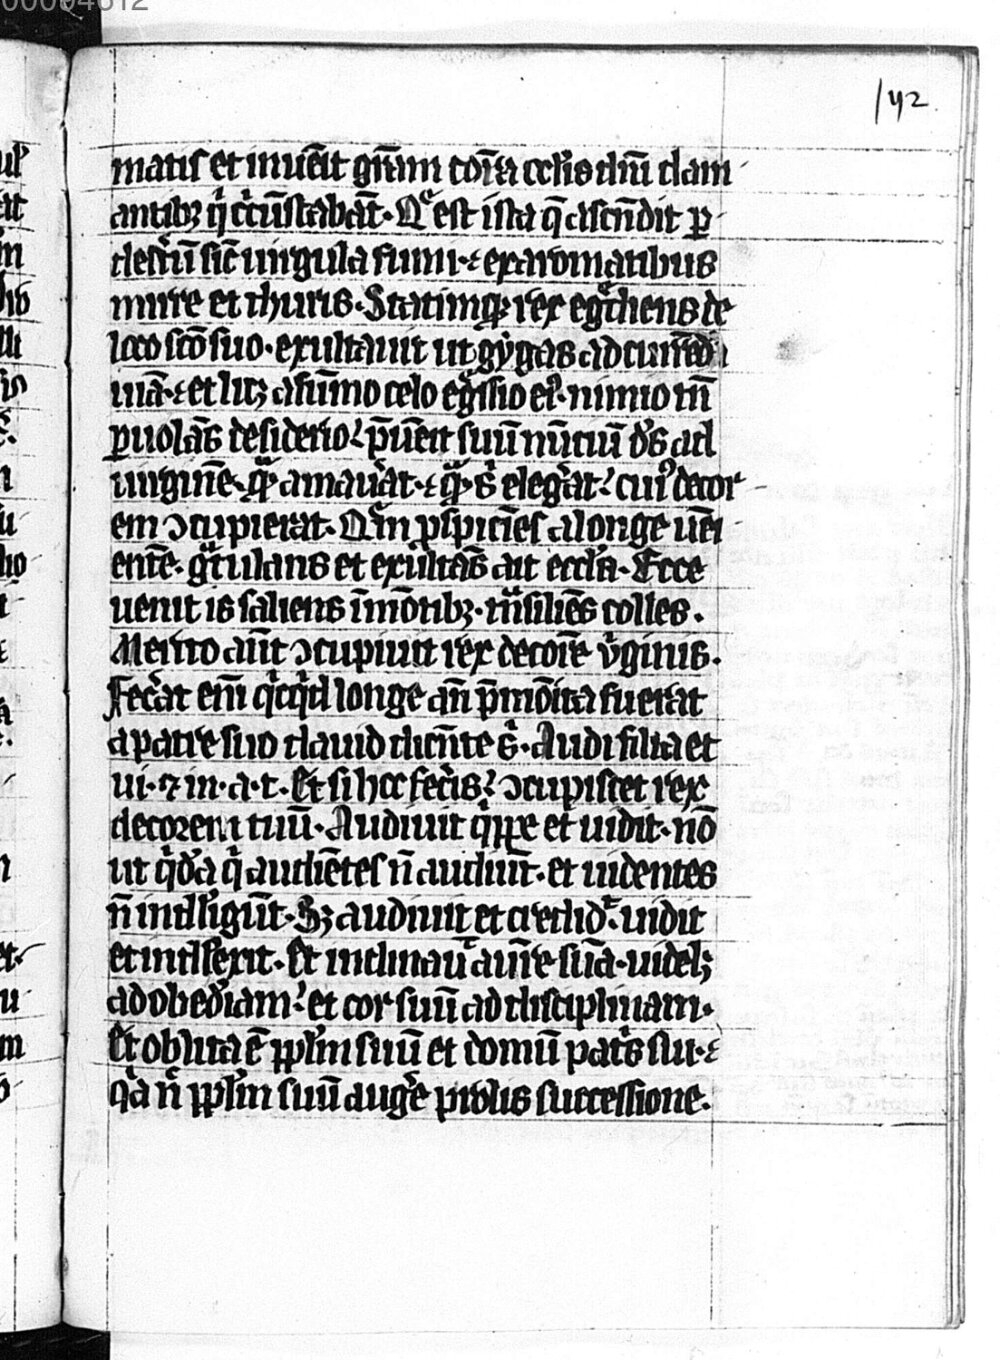 00004612
142
matis et inuēit gr̄am corā celsiō dn̄i clam
antibꝫ q̇ c̄cūstabāt. Q̄ est ista q̄ ascn̄dit p
desertū sic̄ uirgula fumi. ⁊ ex aromatibus
mirre et thuris. Statimqꝫ rex egrediens de
loco sc̄o suo. exultauit ut gygas ad currēdā
uiā. ⁊ et licꝫ a sūmo celo egressio eiꝰ. nimio tn̄
puolās desiderio. p̄uēit suū nūciū ad
uirginē. qꝫ amau̇at. ⁊ qꝫ s̓ elegȧt. cuiꝰ decor
em ↄcupierat. Q̄m pspiciēs a longe ueni
entē. gratulans et exultās ait ecclīa. Ecce
uenit is saliens ī mōtibꝫ. trāsiliēs colles.
Merito aūt ↄcupiuit rex decorē v̓ginis.
Fecȧt eni̅ q̇cq̇d longe an̄ p̄monita fuerat
a patre suo dauid dicente s̓. Audi filia et
ui. ⁊ in. a. t. Et si hoc fecis. ↄcupiscet rex
decorem tuū. Audiuit q̇ppe et uidit. nō
ut q̇dā q̇ audiētes n̄ audiūt. et uidentes
n̄ intelligūt. Sꝫ audiuit et credid᷒. uidit
et intellexit. Et inclinau᷒ aurē suā. uidelꝫ
ad obediām. et cor suū ad disciplinam.
Et oblita ē pplm̄ suū et domū patris sui. ⁊
q̇a n̄ pplm̄ suū augȩ̄ prolis successione.